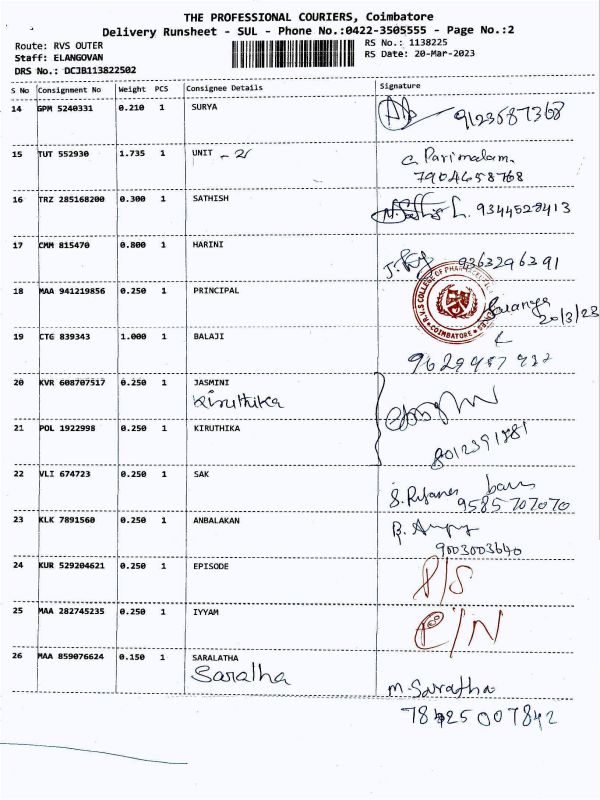 THE PROFESSIONAL COURIERS, Coimbatore
Delivery Runsheet - SUL - Phone No.:0422-3505555 - Page No.:2
Route: RVS OUTER RS No.: 1138225
Staff: ELANGOVAN RS Date: 20-Mar-2023
DRS No.: DCJB113822502
S No Consignment No Weight PCS Consignee Details Signature
14 GPM 5240331 0.210 1 SURYA
9123587368
15 TUT 552930 1.735 1 UNIT - 2
C. Parimalam.
7904658768
16 TRZ 285168200 0.300 1 SATHISH
9344528413
17 CMM 815470 0.800 1 HARINI
9363296391
18 MAA 941219856 0.250 1 PRINCIPAL
R.V.S COLLEGE OF
COIMBATORE
Saranya
20/3/23
19 CTG 839343 1.000 1 BALAJI
20 KVR 608707517 0.250 1 JASMINI
Kiruthika
21 POL 1922998 0.250 1 KIRUTHIKA
8012391881
22 VLI 674723 0.250 1 SAK
9585707070
23 KLK 7891560 0.250 1 ANBALAKAN
9003003640
24 KUR 529204621 0.250 1 EPISODE
P/S
25 MAA 282745235 0.250 1 IYYAM
26 MAA 859076624 0.150 1 SARALATHA
Saratha
M. Saratha